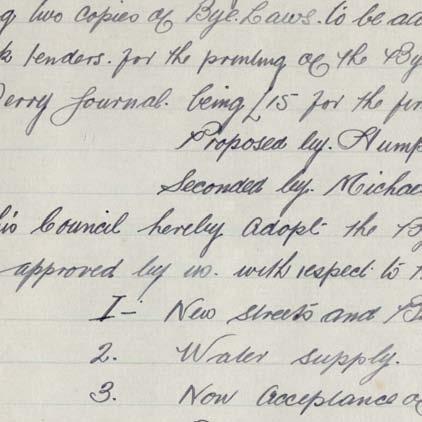 g two copies of Bye. Laws. to be ad
k tenders. for the printing of the By
Derry Journal. being £15 for the fir
Proposed by. Hump
Seconded by. Michae
his Council hereby adopt the B
approved by us. with respect to t
1- New streets and B
2. Water supply.
3. Non Acceptance of